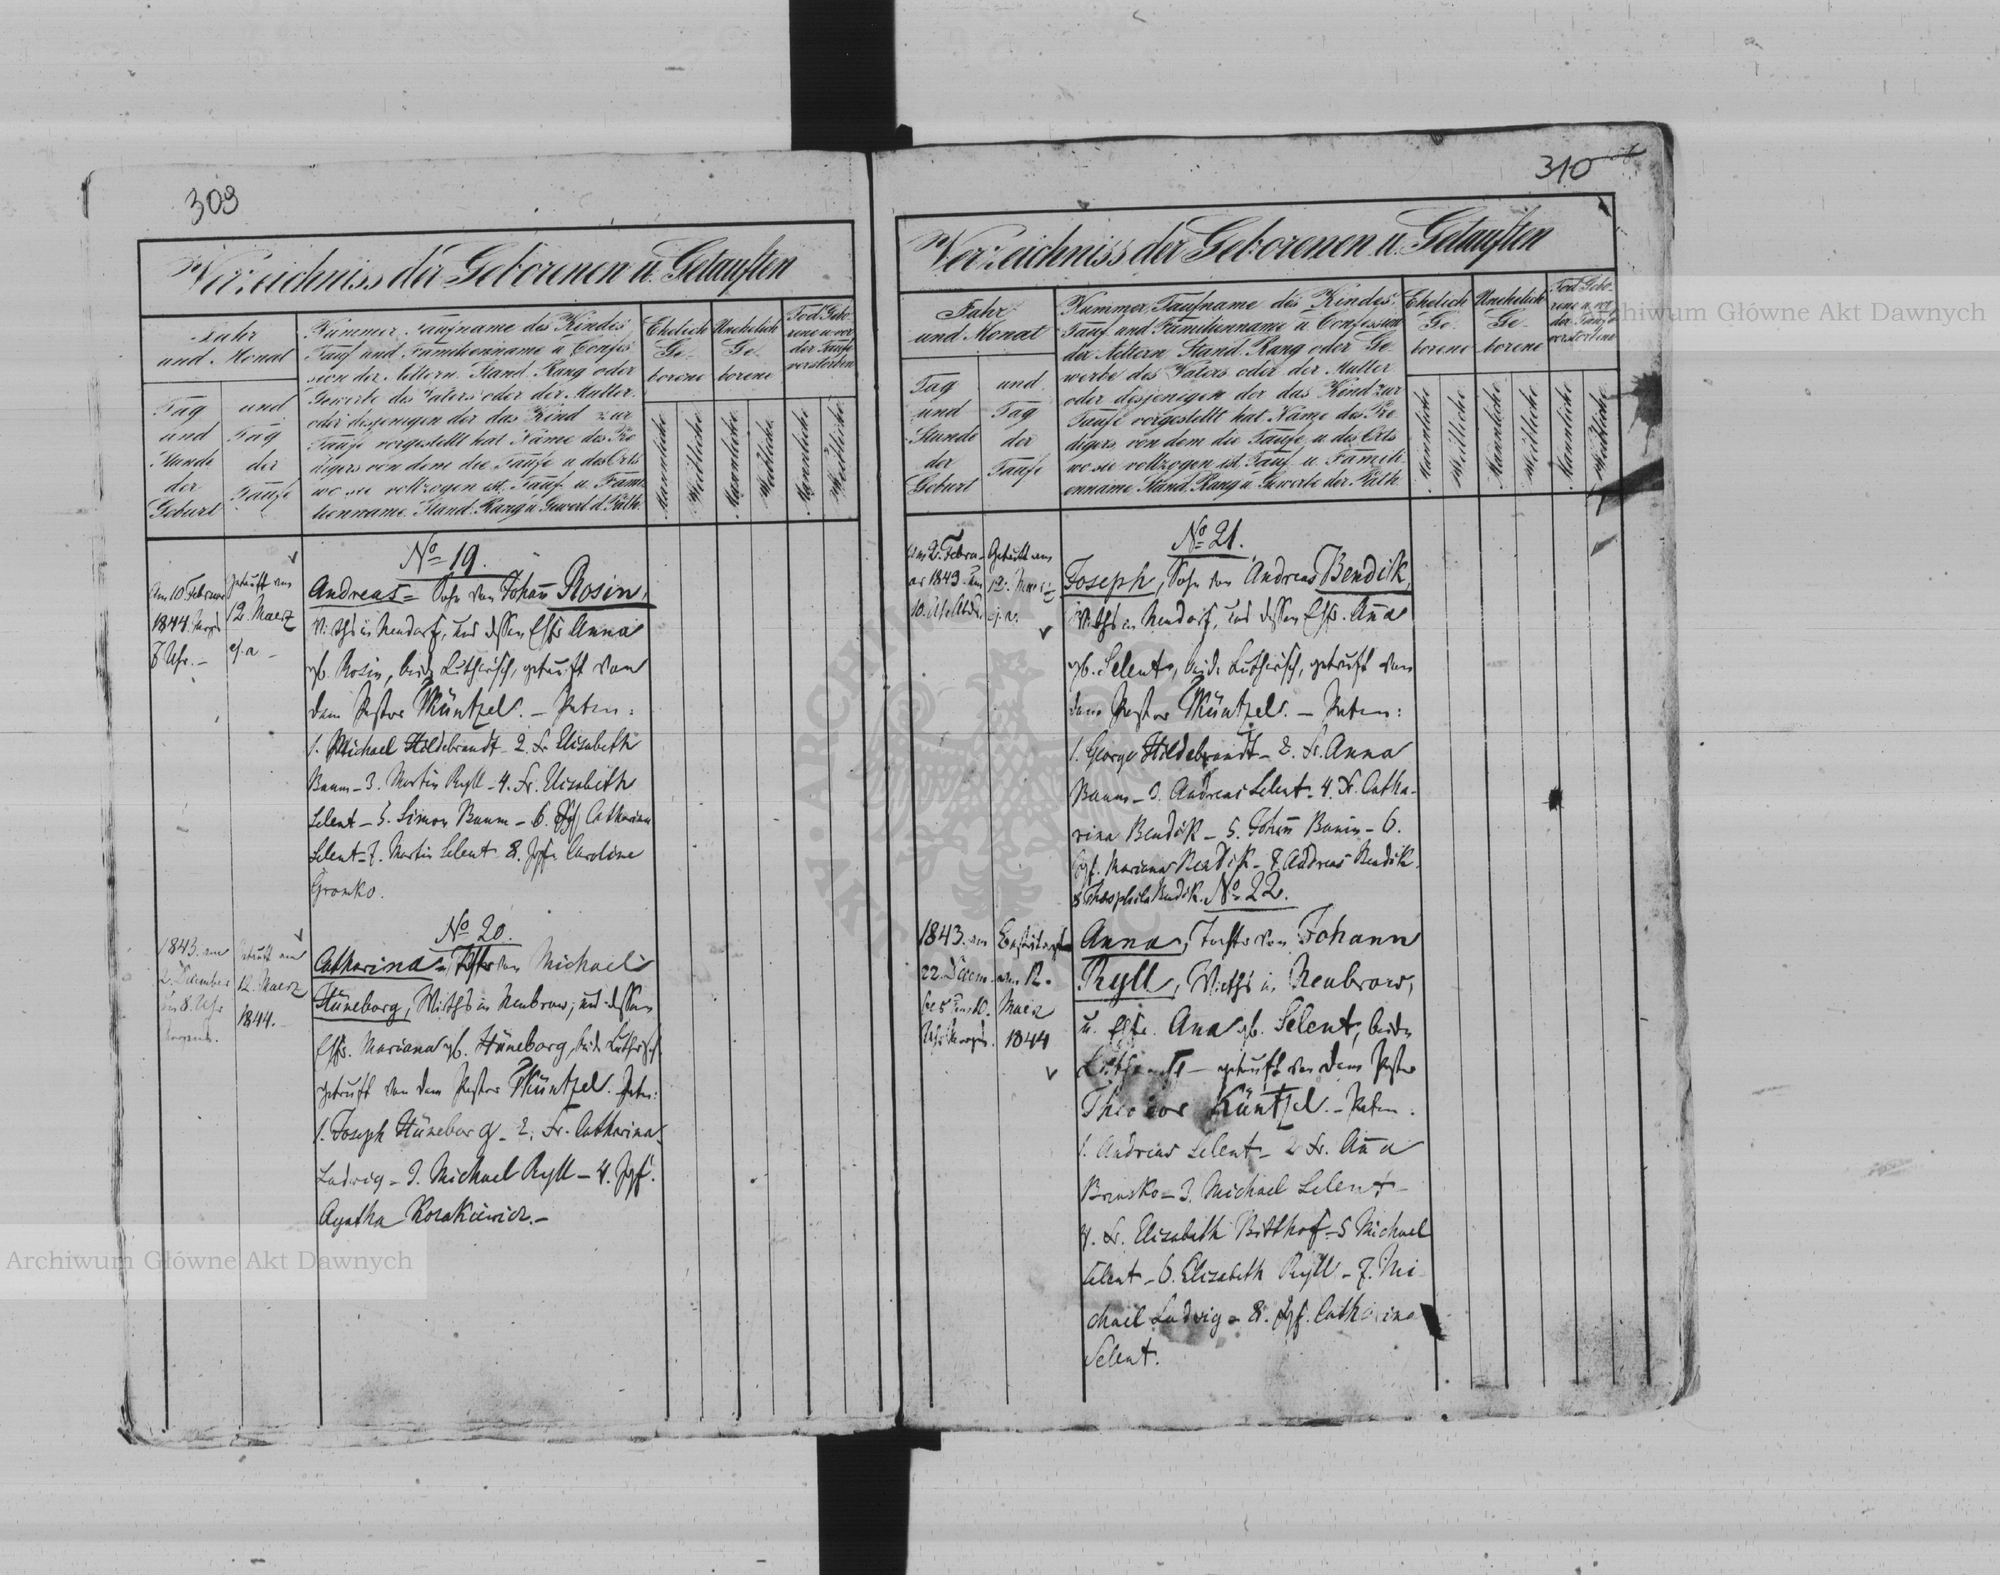 309
Verzeichniss der Geborenen u. Getauften
Jahr
und Monat
Tag
und
Stunde
der
Geburt
und
Tag
der
Taufe
Nummer, Taufname des Kindes,
Tauf und Familienname u Confes
sion der Aeltern, Stand, Rang oder
Gewerbe des Vaters oder der Mutter
oder desjenigen der das Kind zur
Taufe vorgestellt hat Name des Pre
digers von dem die Taufe u des Orts
wo sie vollzogen ist, Tauf u Fami
lienname, Stand, Rang u Gewerb d Path.
Ehelich
Ge-
borene
Unehelich
Ge-
borene
Tod Gebo-
rene u vor
der Taufe
verstorben
Mannliche
Weibliche
Mannliche
Weibliche
Mannliche
Weibliche
No 19.
Am 10 Februar
1844 Morgs
8 Uhr. –
getauft am
12. Maerz
ej. a –
Andreas = Sohn von Johann Rosin,
Wirths in Neudorf, und dessen Ehfr Anna
gb. Rosin, beide Lutherisch, getauft von
dem Pastor Küntzel. – Paten:
1. Michael Hildebrandt – 2. Fr Elisabeth
Baum – 3. Martin Ryll – 4. Fr. Elisabeth
Selent – 5. Simon Baum – 6. Catharina
Selent – 7. Martin Selent 8. Jgfr Caroline
Gronko.
No 20.
1843. am
2. December
um 8. Uhr
Morgends.
Getauft am
12. Maerz
1844. –
Catharina, Tochter von Michael
Hüneborg, Wirths in Neubrow, und dessen
Ehfr. Mariana gb. Hüneborg, beide Lutherisch
getauft von dem Pastor Küntzel. Paten:
1. Joseph Hüneborg – 2. Fr. Catharina
Ludwig – 3. Michael Ryll – 4. Jgf.
Agatha Kozakiewicz. –
310
Verzeichniss der Geborenen u. Getauften
Jahr
und Monat
Tag
und
Stunde
der
Geburt
und
Tag
der
Taufe
Nummer, Taufname des Kindes,
Tauf und Familienname u Confession
der Aeltern, Stand, Rang oder Ge-
werbe des Vaters oder der Mutter
oder desjenigen der das Kind zur
Taufe vorgestellt hat, Name des Pre
digers, von dem die Taufe, u des Orts
wo sie vollzogen ist, Tauf u Famili
enname, Stand, Rang u Gewerbe der Path.
Ehelich
Ge-
borene
Unehelich
Ge-
borene
Tod Gebo-
rene u. vor
der Taufe
verstorbene
Mannliche
Weibliche
Mannliche
Weibliche
Mannliche
Weibliche
No 21.
Am 2. Febru-
ar 1843 um
10. Uhr Abds.
Getauft am
12. Maerz
ej. a.
Joseph, Sohn von Andreas Bendik,
Wirths in Neudorf, und dessen Ehfr. Anna
gb. Selent, beide Lutherisch, getauft von
dem Pastor Küntzel. – Paten:
1. George Hildebrandt – 2. Fr. Anna
Baum – 3. Andreas Selent – 4. Fr. Catha-
rina Bendik – 5. Johann Baum – 6.
Jgf. Mariana Bendik – 7 Andreas Bendik.
8 Theophila Bendik. No 22.
1843. am
22. Decem-
ber um 10.
Uhr Morgds.
am 12.
Maerz
1844
Anna, Tochter von Johann
Ryll, Wirths in Neubrow,
u. Ehfr. Anna gb. Selent, beide
Lutherisch – getauft von dem Pastor
Theodor Küntzel. – Paten.
1. Andreas Selent – 2 Fr. Anna
Brzusko – 3. Michael Selent –
4. Fr. Elisabeth Bitthof – 5 Michael
Selent – 6. Elizabeth Ryll – 7. Mi-
chael Ludwig – 8. Jgf. Catharina
Selent.
Archiwum Główne Akt Dawnych
Archiwum Główne Akt Dawnych